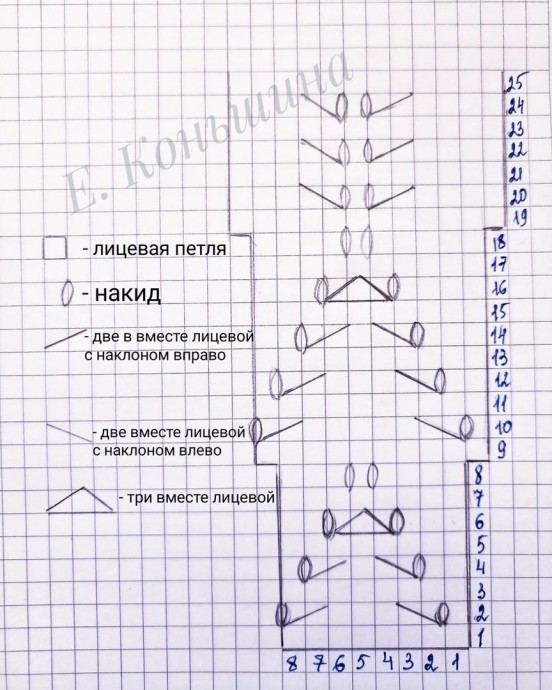 Е. Коньшина
25
24
23
22
21
20
19
18
17
16
15
14
13
12
11
10
9
8
7
6
5
4
3
2
1
- лицевая петля
- накид
- две в вместе лицевой
с наклоном вправо
- две вместе лицевой
с наклоном влево
- три вместе лицевой
8 7 6 5 4 3 2 1